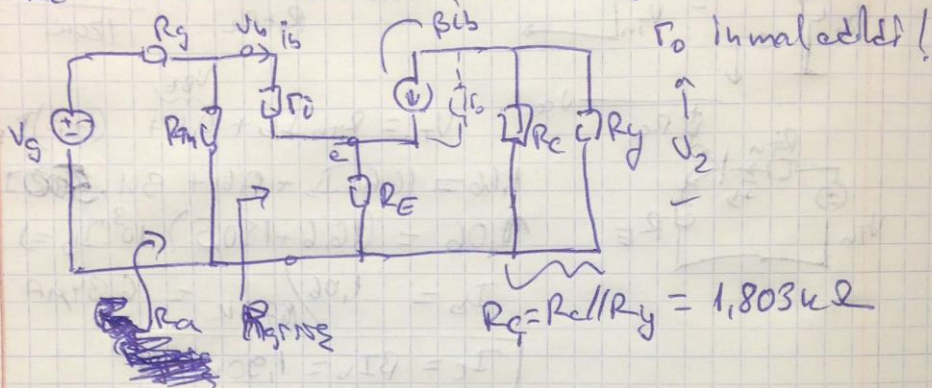 Rg
Vb
ib
βib
ro ihmal edildi!
Vg
+-
Rm
ri
ro
Rc
Ry
V2
e
RE
Ra
Rç=Rc//Ry = 1,803kΩ